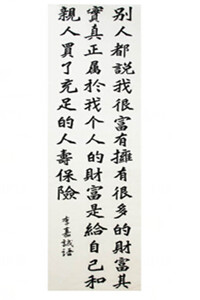 別人都說我很富有擁有很多的財富其
實真正属於我个人的財富是給自己和
親人買了充足的人壽保險
李嘉誠語